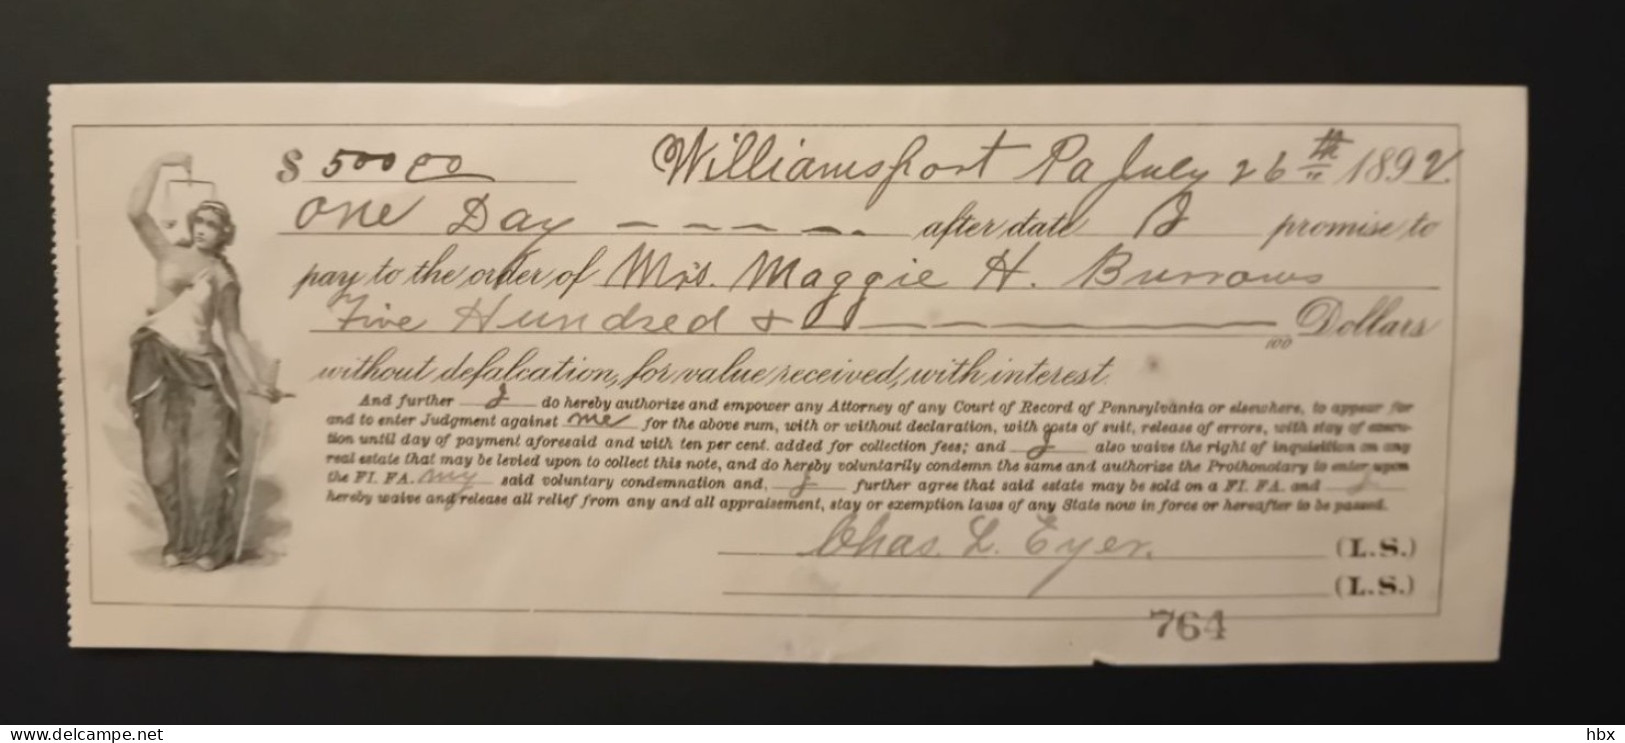 $ 500 00 Williamsport Pa July 26th 1892
One Day after date I promise to
pay to the order of Mrs. Maggie H. Burrows
Five Hundred & 100 Dollars
without defalcation, for value received, with interest.
And further I do hereby authorize and empower any Attorney of any Court of Record of Pennsylvania or elsewhere, to appear for
and to enter Judgment against me for the above sum, with or without declaration, with costs of suit, release of errors, with stay of execu-
tion until day of payment aforesaid and with ten per cent. added for collection fees; and I also waive the right of inquisition on any
real estate that may be levied upon to collect this note, and do hereby voluntarily condemn the same and authorize the Prothonotary to enter upon
the FI. FA. my said voluntary condemnation and, I further agree that said estate may be sold on a FI. FA. and I
hereby waive and release all relief from any and all appraisement, stay or exemption laws of any State now in force or hereafter to be passed.
Chas. L. Eyer. (L.S.)
(L.S.)
764
www.delcampe.net
hbx